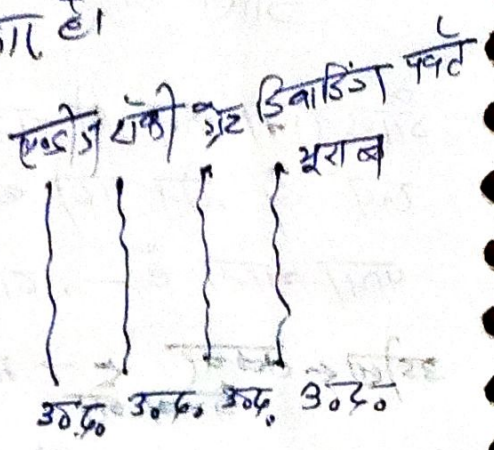 है।
एण्डीज रॉकी ग्रेट डिवाडिंग पर्वत
यूराल
उ०द० उ०द० उ०द० उ०द०